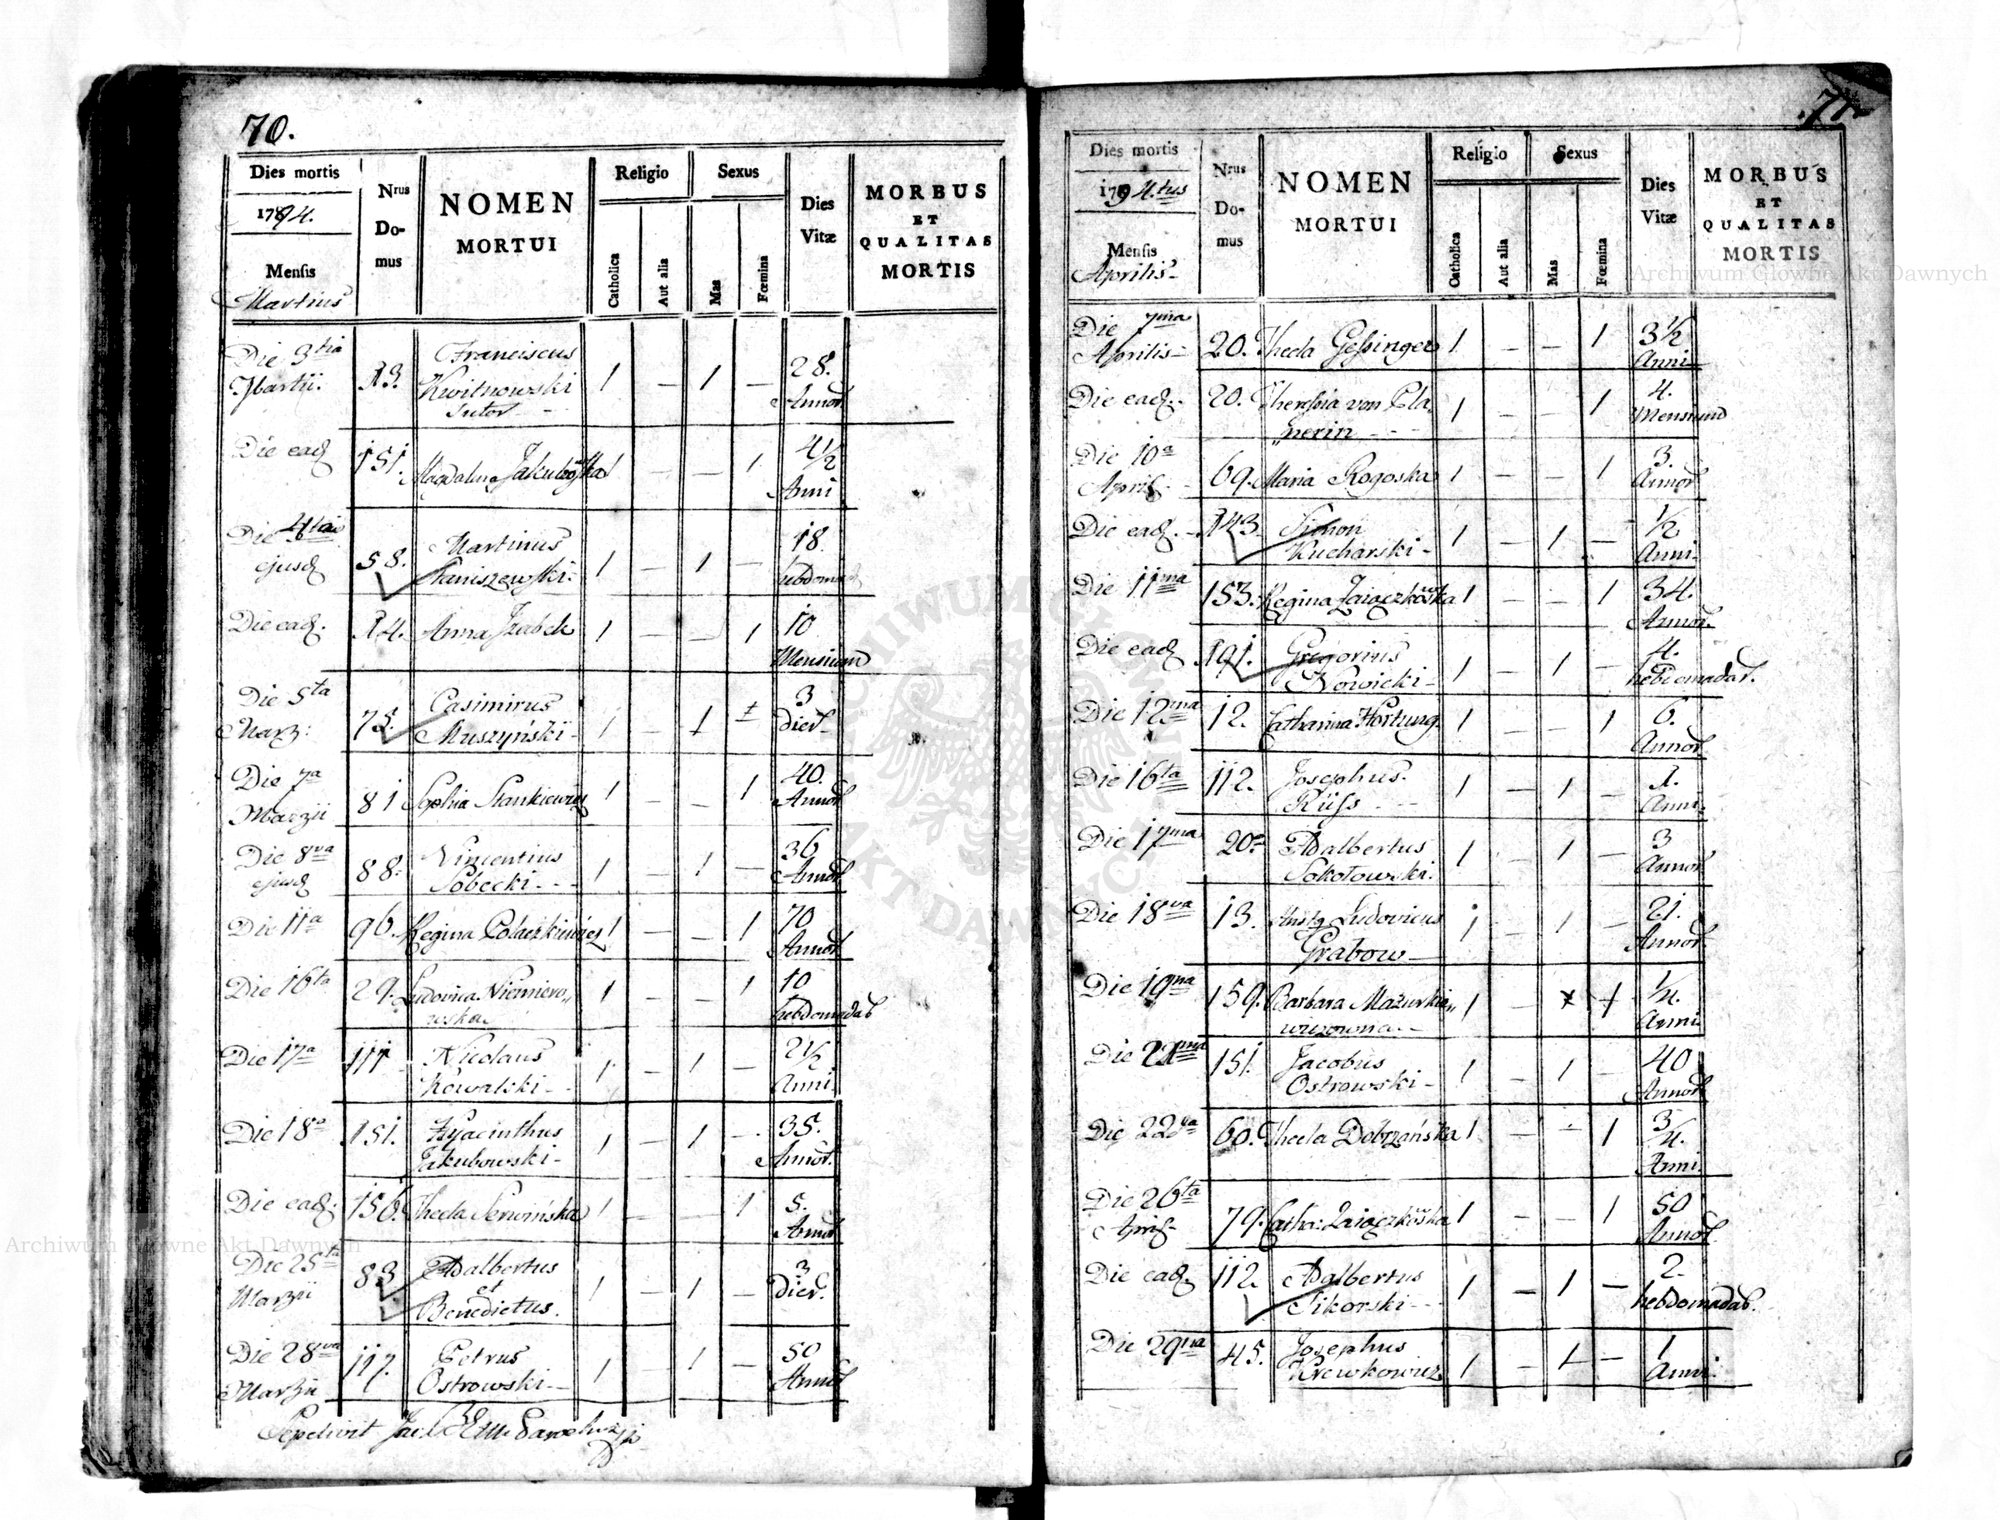 70.
Dies mortis
1794.
Mensis
Martius
Nrus Domus
NOMEN
MORTUI
Religio
Catholica
Aut alia
Sexus
Mas
Fœmina
Dies
Vitæ
MORBUS
ET
QUALITAS
MORTIS
Die 3tia Martii. 13. Franciscus Kwitnowski sutor 1 – 1 – 28. Annor.
Die ead 151. Magdalena Jakubowska 1 – – 1 4½ Anni
Die 4ta ejusd 58. Martinus Staniszewski 1 – 1 – 18 hebdomad
Die ead. 14. Anna Szabek 1 – – 1 10 Mensium
Die 5ta Marz: 75. Casimirus Muszyński 1 – 1 3 Dier.
Die 7a Marzii 81 Sophia Stankiewicz 1 – – 1 40. Annor
Die 8va ejusd 88. Vincentius Sobecki 1 – 1 – 36 Annor
Die 11a 96. Regina Polaczkiewicz 1 – – 1 70 Annor
Die 16ta 29. Ludovica Niemierowska 1 – – 1 10 hebdomadab
Die 17a 117 Nicolaus Kowalski 1 – 1 – 2½ Anni
Die 18a 151. Hyacinthus Jakubowski 1 – 1 – 35. Annor.
Die ead. 156. Thecla Serwińska 1 – – 1 5. Annor
Die 25ta Marzii 83 Adalbertus et Benedictus. 1 – 1 – 3 Dier.
Die 28va Marzii 117. Petrus Ostrowski 1 – 1 – 50 Annor
Sepelivit
71
Dies mortis
1794.tus
Mensis
Aprilis
Nrus Domus
NOMEN
MORTUI
Religio
Catholica
Aut alia
Sexus
Mas
Fœmina
Dies
Vitæ
MORBUS
ET
QUALITAS
MORTIS
Die 7ma Aprilis 20. Thecla Gessinger 1 – – 1 3½ Anni
Die ead. 20. Theresia von Planerin 1 – – 1 4. Mensium
Die 10a April 69. Maria Rogoska 1 – – 1 3. Annor
Die ead. 143. Simon Kucharski 1 – 1 – ½ Anni
Die 11ma 153. Regina Zaiączkowska 1 – – 1 34. Annor.
Die ead 191. Gregorius Nowicki 1 – 1 – 4. hebdomadab.
Die 12ma 12. Catharina Hortung. 1 – – 1 6. Annor
Die 16ta 112. Josephus Rüss 1 – 1 – 1. Anni
Die 17ma 20 Adalbertus Sokołowski. 1 – 1 – 3 Annor
Die 18va 13. Ludovicus Grabow 1 – 1 – 21. Annor
Die 19na 159. Barbara Mazurkiewiczowna 1 – 1 ¼ Anni
Die 151. Jacobus Ostrowski 1 – 1 – 40 Annor
Die 22da 60. Thecla Dobrzańska 1 – – 1 ¾ Anni
Die 26ta April 79. Catha: Zaiączkowska 1 – – 1 50 Annor
Die ead. 112. Adalbertus Sikorski 1 – 1 – 2. hebdomadab.
Die 29na 45. Josephus Krewkowicz 1 – 1 – 1 Anni.
Archiwum Główne Akt Dawnych
Archiwum Główne Akt Dawnych
ARCHIWUM GŁÓWNE AKT DAWNYCH